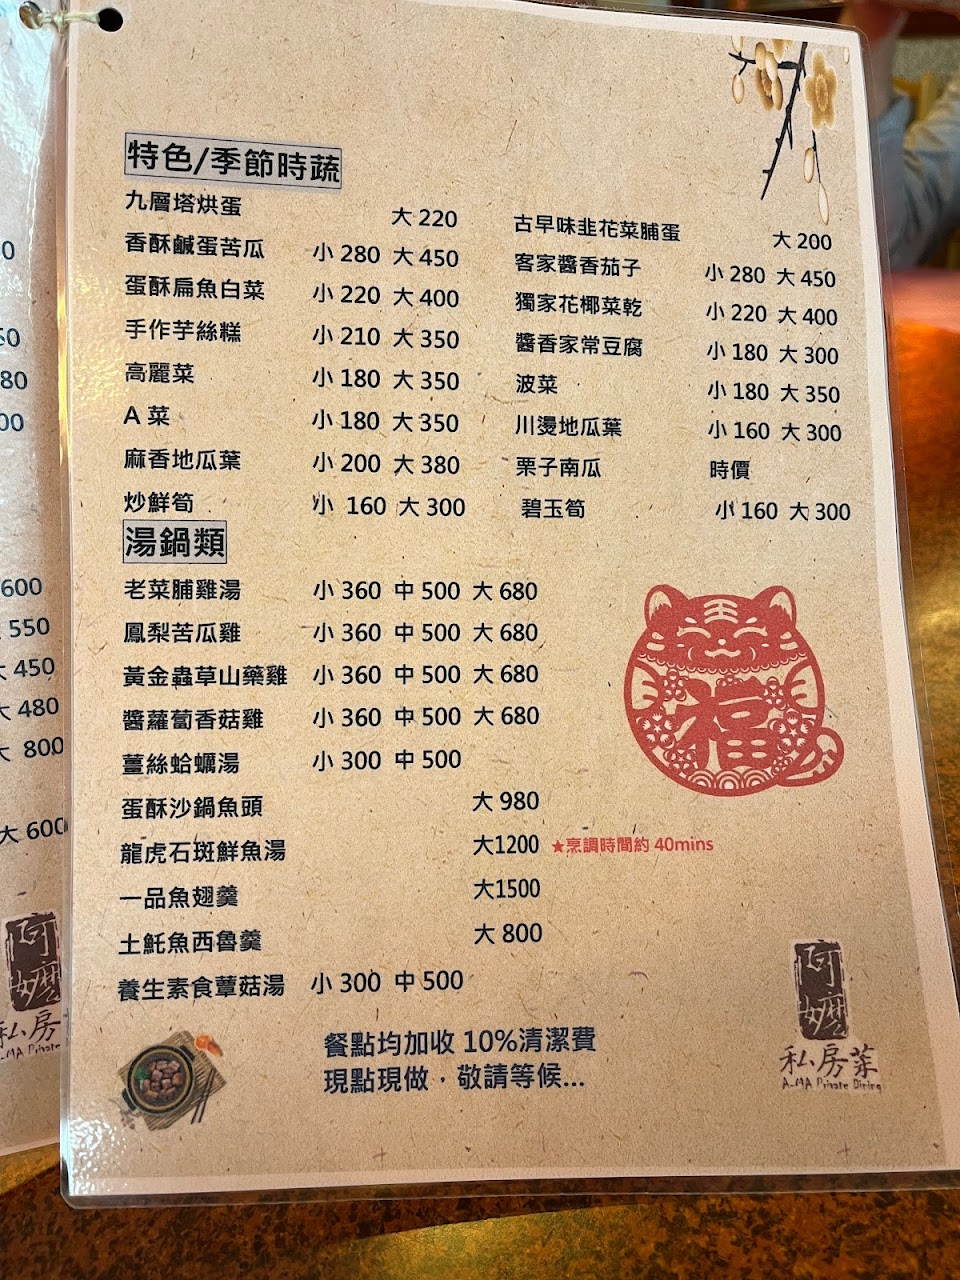 特色/季節時蔬
九層塔烘蛋 大 220
香酥鹹蛋苦瓜 小 280 大 450
蛋酥扁魚白菜 小 220 大 400
手作芋絲糕 小 210 大 350
高麗菜 小 180 大 350
A 菜 小 180 大 350
麻香地瓜葉 小 200 大 380
炒鮮筍 小 160 大 300
古早味韭花菜脯蛋 大 200
客家醬香茄子 小 280 大 450
獨家花椰菜乾 小 220 大 400
醬香家常豆腐 小 180 大 300
波菜 小 180 大 350
川燙地瓜葉 小 160 大 300
栗子南瓜 時價
碧玉筍 小 160 大 300
湯鍋類
老菜脯雞湯 小 360 中 500 大 680
鳳梨苦瓜雞 小 360 中 500 大 680
黃金蟲草山藥雞 小 360 中 500 大 680
醬蘿蔔香菇雞 小 360 中 500 大 680
薑絲蛤蠣湯 小 300 中 500
蛋酥沙鍋魚頭 大 980
龍虎石斑鮮魚湯 大1200 ★烹調時間約 40mins
一品魚翅羹 大1500
土魠魚西魯羹 大 800
養生素食蕈菇湯 小 300 中 500
福
餐點均加收 10%清潔費
現點現做，敬請等候...
阿嬤
私房菜
A-MA Private Dining
600
550
450
大 480
大 800
大 600
阿嬤
私房